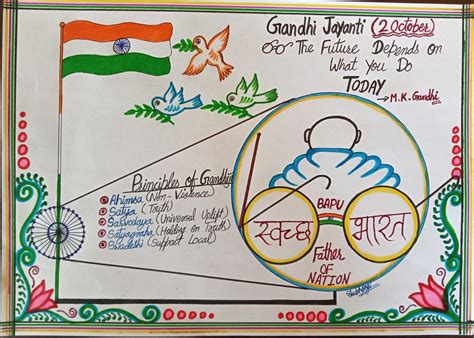 Gandhi Jayanti (2 October)
The Future Depends on
What You Do
TODAY
→ M.K. Gandhi
Principles of Gandhiji
Ahimsa (Non-Violence)
Satya (Truth)
Sarvodaya (Universal Uplift)
Satyagraha (Holding on Truth)
Swadeshi (Support Local)
BAPU
स्वच्छ भारत
Father
OF
NATION